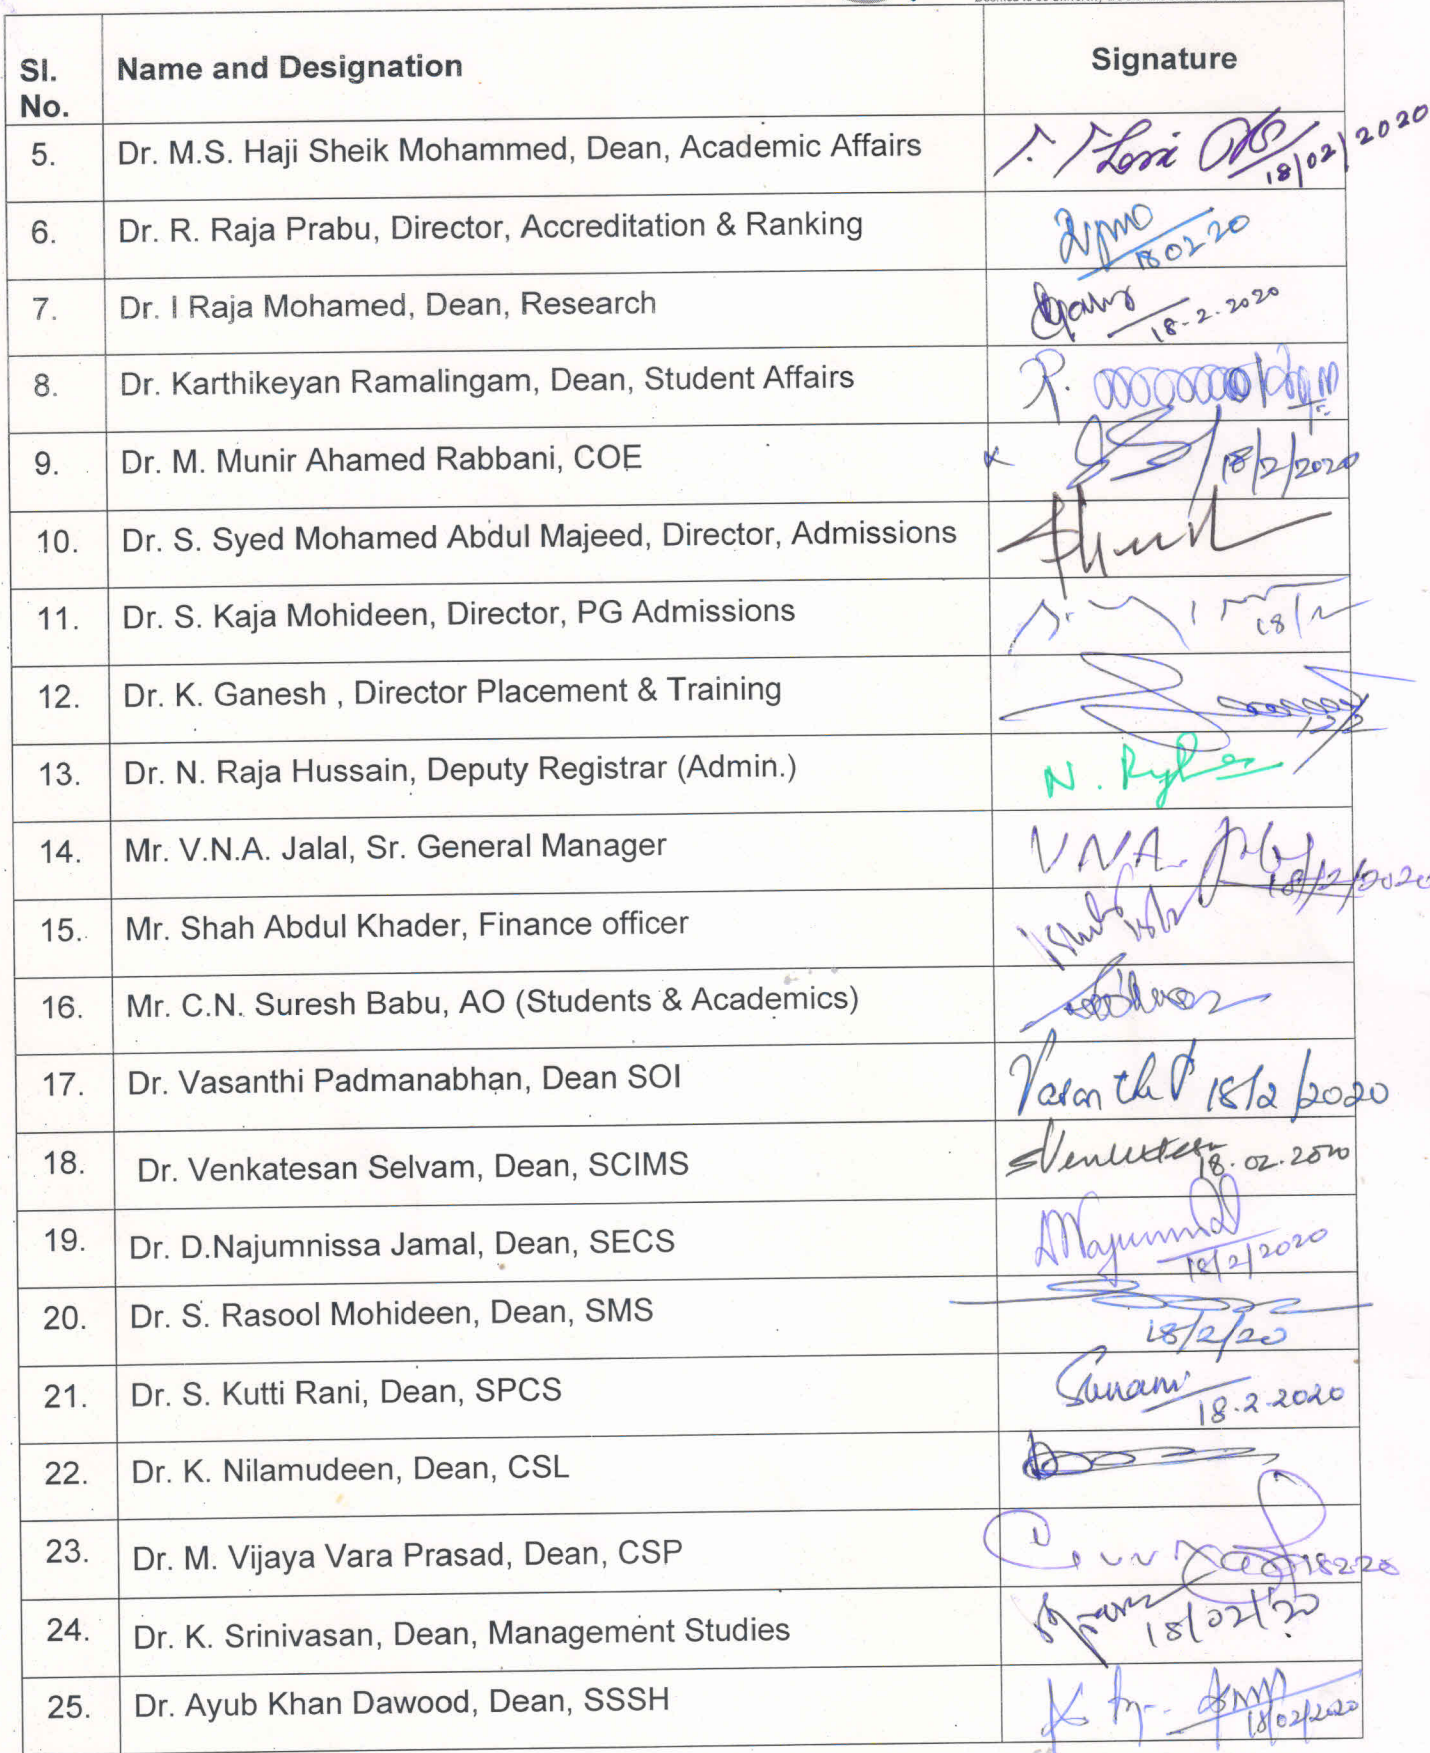 Sl. No. Name and Designation Signature
5. Dr. M.S. Haji Sheik Mohammed, Dean, Academic Affairs 18/02/2020
6. Dr. R. Raja Prabu, Director, Accreditation & Ranking 18 02 20
7. Dr. I Raja Mohamed, Dean, Research 18-2-2020
8. Dr. Karthikeyan Ramalingam, Dean, Student Affairs
9. Dr. M. Munir Ahamed Rabbani, COE 18/2/2020
10. Dr. S. Syed Mohamed Abdul Majeed, Director, Admissions
11. Dr. S. Kaja Mohideen, Director, PG Admissions
12. Dr. K. Ganesh , Director Placement & Training
13. Dr. N. Raja Hussain, Deputy Registrar (Admin.) N.
14. Mr. V.N.A. Jalal, Sr. General Manager V.N.A. 18/2/2020
15. Mr. Shah Abdul Khader, Finance officer 18/2
16. Mr. C.N. Suresh Babu, AO (Students & Academics)
17. Dr. Vasanthi Padmanabhan, Dean SOI 18/2/2020
18. Dr. Venkatesan Selvam, Dean, SCIMS 18.02.2020
19. Dr. D.Najumnissa Jamal, Dean, SECS 18/2/2020
20. Dr. S. Rasool Mohideen, Dean, SMS 18/2/20
21. Dr. S. Kutti Rani, Dean, SPCS 18.2.2020
22. Dr. K. Nilamudeen, Dean, CSL
23. Dr. M. Vijaya Vara Prasad, Dean, CSP 18220
24. Dr. K. Srinivasan, Dean, Management Studies 18/02/20
25. Dr. Ayub Khan Dawood, Dean, SSSH 18/02/2020